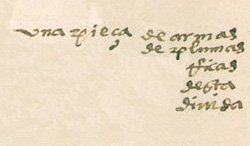 una pieça de armas
de plumas
ricas
desta
diuisa